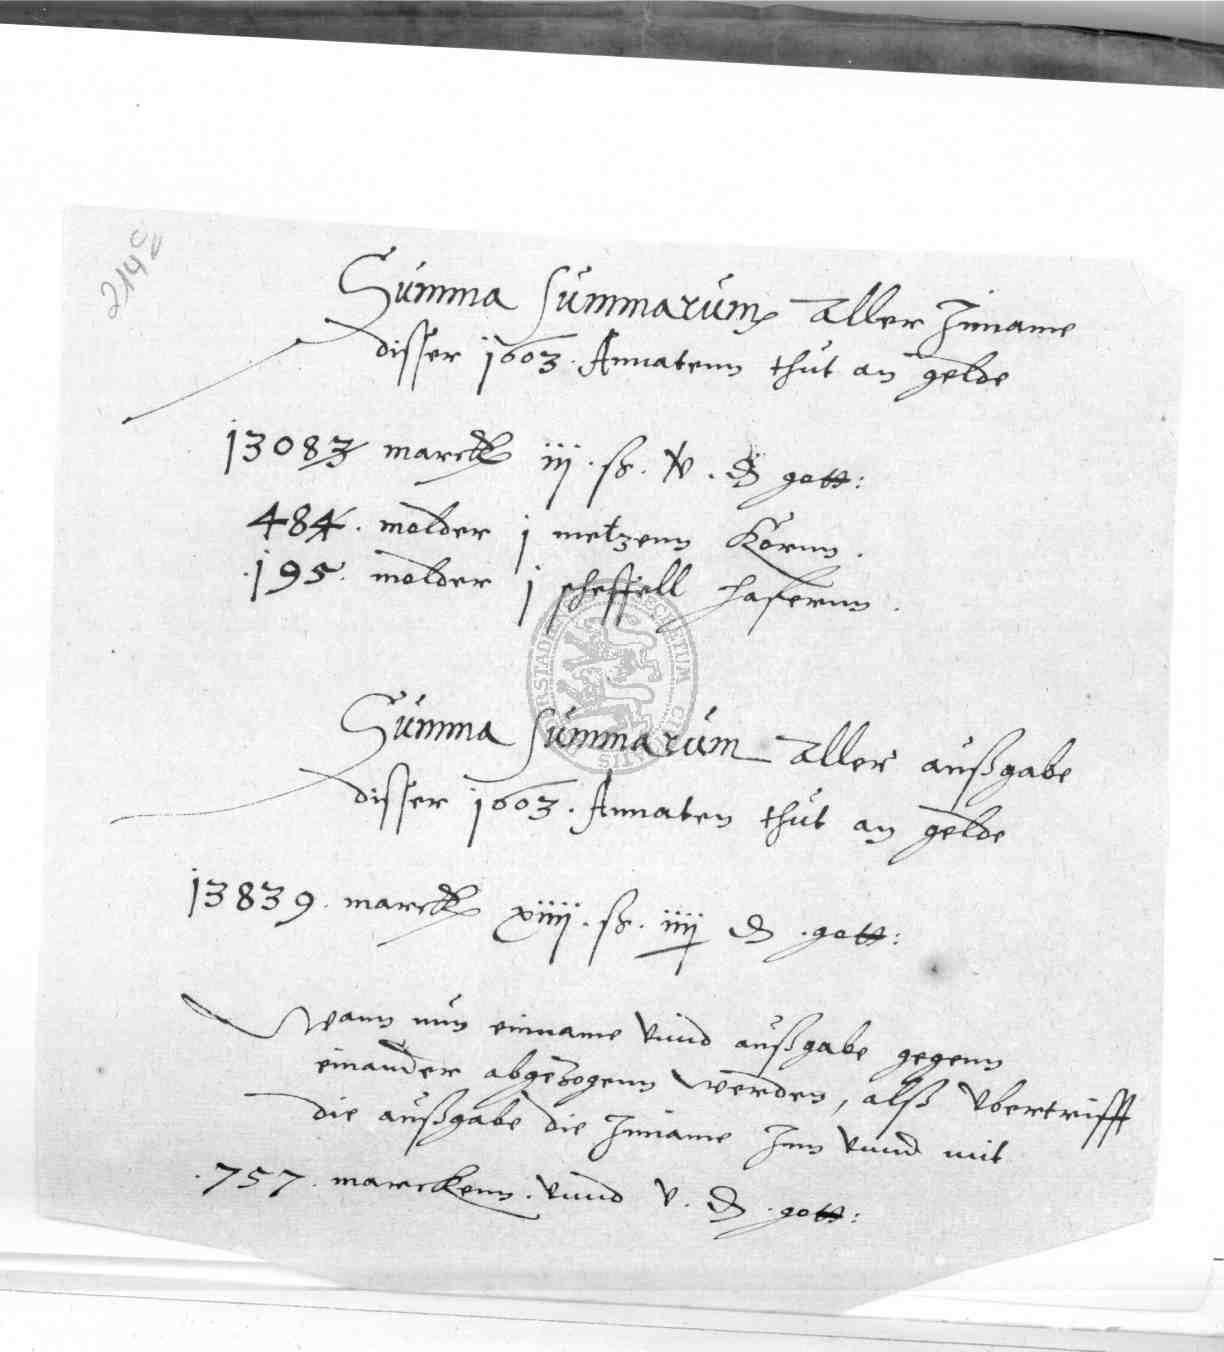 214 c
Summa Summarum aller Inname
disser 1603. Annatenn thut an gelde
13083 marck iij. ß. ₰ gott:
484. molder j metzenn Kornn.
.195. molder j scheffell hafernn.
Summa Summarum aller außgabe
disser 1603. Annaten thut an gelde
13839. marck xiiij. ß. iiij ₰ .gott:
Wann nun einname vnnd außgabe gegenn
einander abgezogenn werden, alß vbertrifft
die außgabe die Inname Inn vnnd mit
.757. marckenn. vnnd v. ₰. gott: